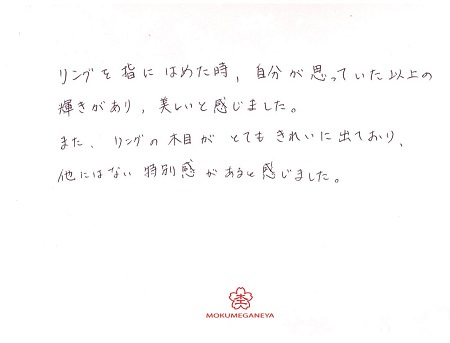 リングを指にはめた時、自分が思っていた以上の
輝きがあり、美しいと感じました。
また、リングの木目がとてもきれいに出ており、
他にはない特別感があると感じました。
MOKUMEGANEYA